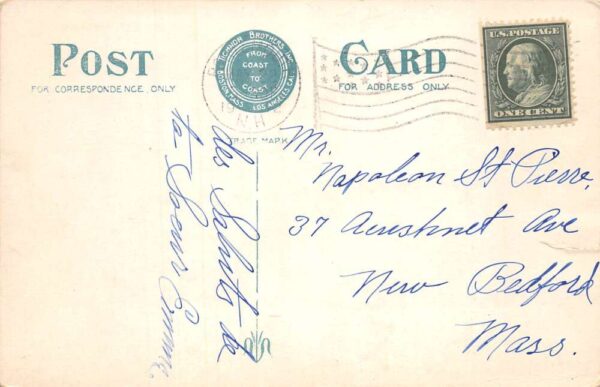 POST CARD
FOR CORRESPONDENCE ONLY
FOR ADDRESS ONLY
TICHNOR BROTHERS INC.
FROM
COAST
TO
COAST
BOSTON MASS. LOS ANGELES CAL.
TRADE MARK
N.H.
U.S. POSTAGE
ONE CENT
des Saluts de
ta Soeur
Mr.
Napoleon St Pierre,
37 Acushnet Ave
New Bedford
Mass.